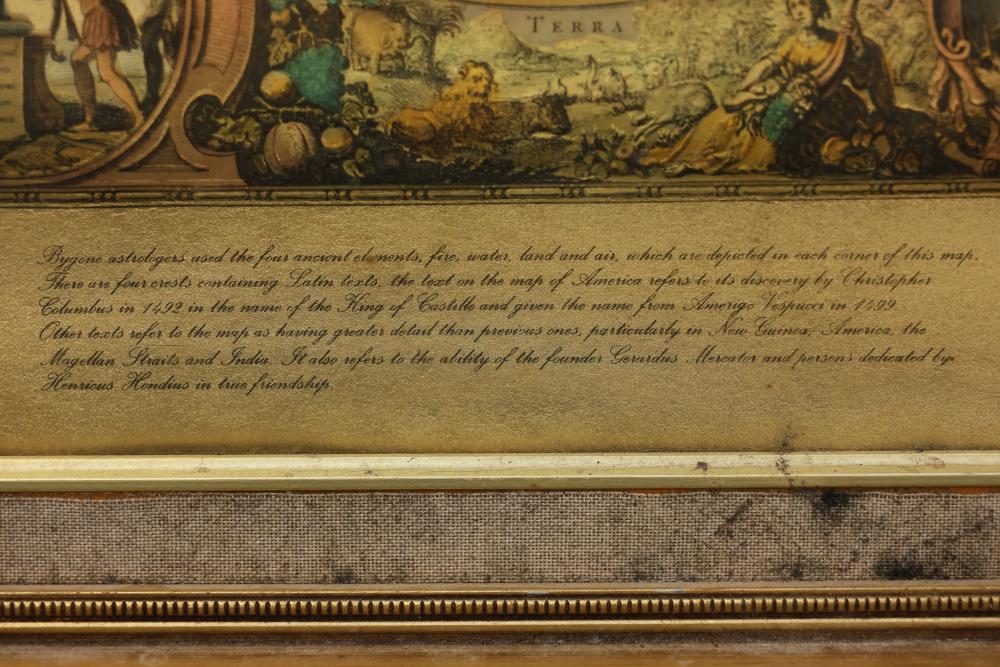 TERRA
Bygone astrologers used the four ancient elements, fire, water, land and air, which are depicted in each corner of this map.
There are four crests containing Latin texts, the text on the map of America refers to its discovery by Christopher
Columbus in 1492 in the name of the King of Castille and given the name from Amerigo Vespucci in 1499.
Other texts refer to the map as having greater detail than previous ones, particularly in New Guinea, America, the
Magellan Straits and India. It also refers to the ability of the founder Gerardus Mercator and persons dedicated by
Henricus Hondius in true friendship.